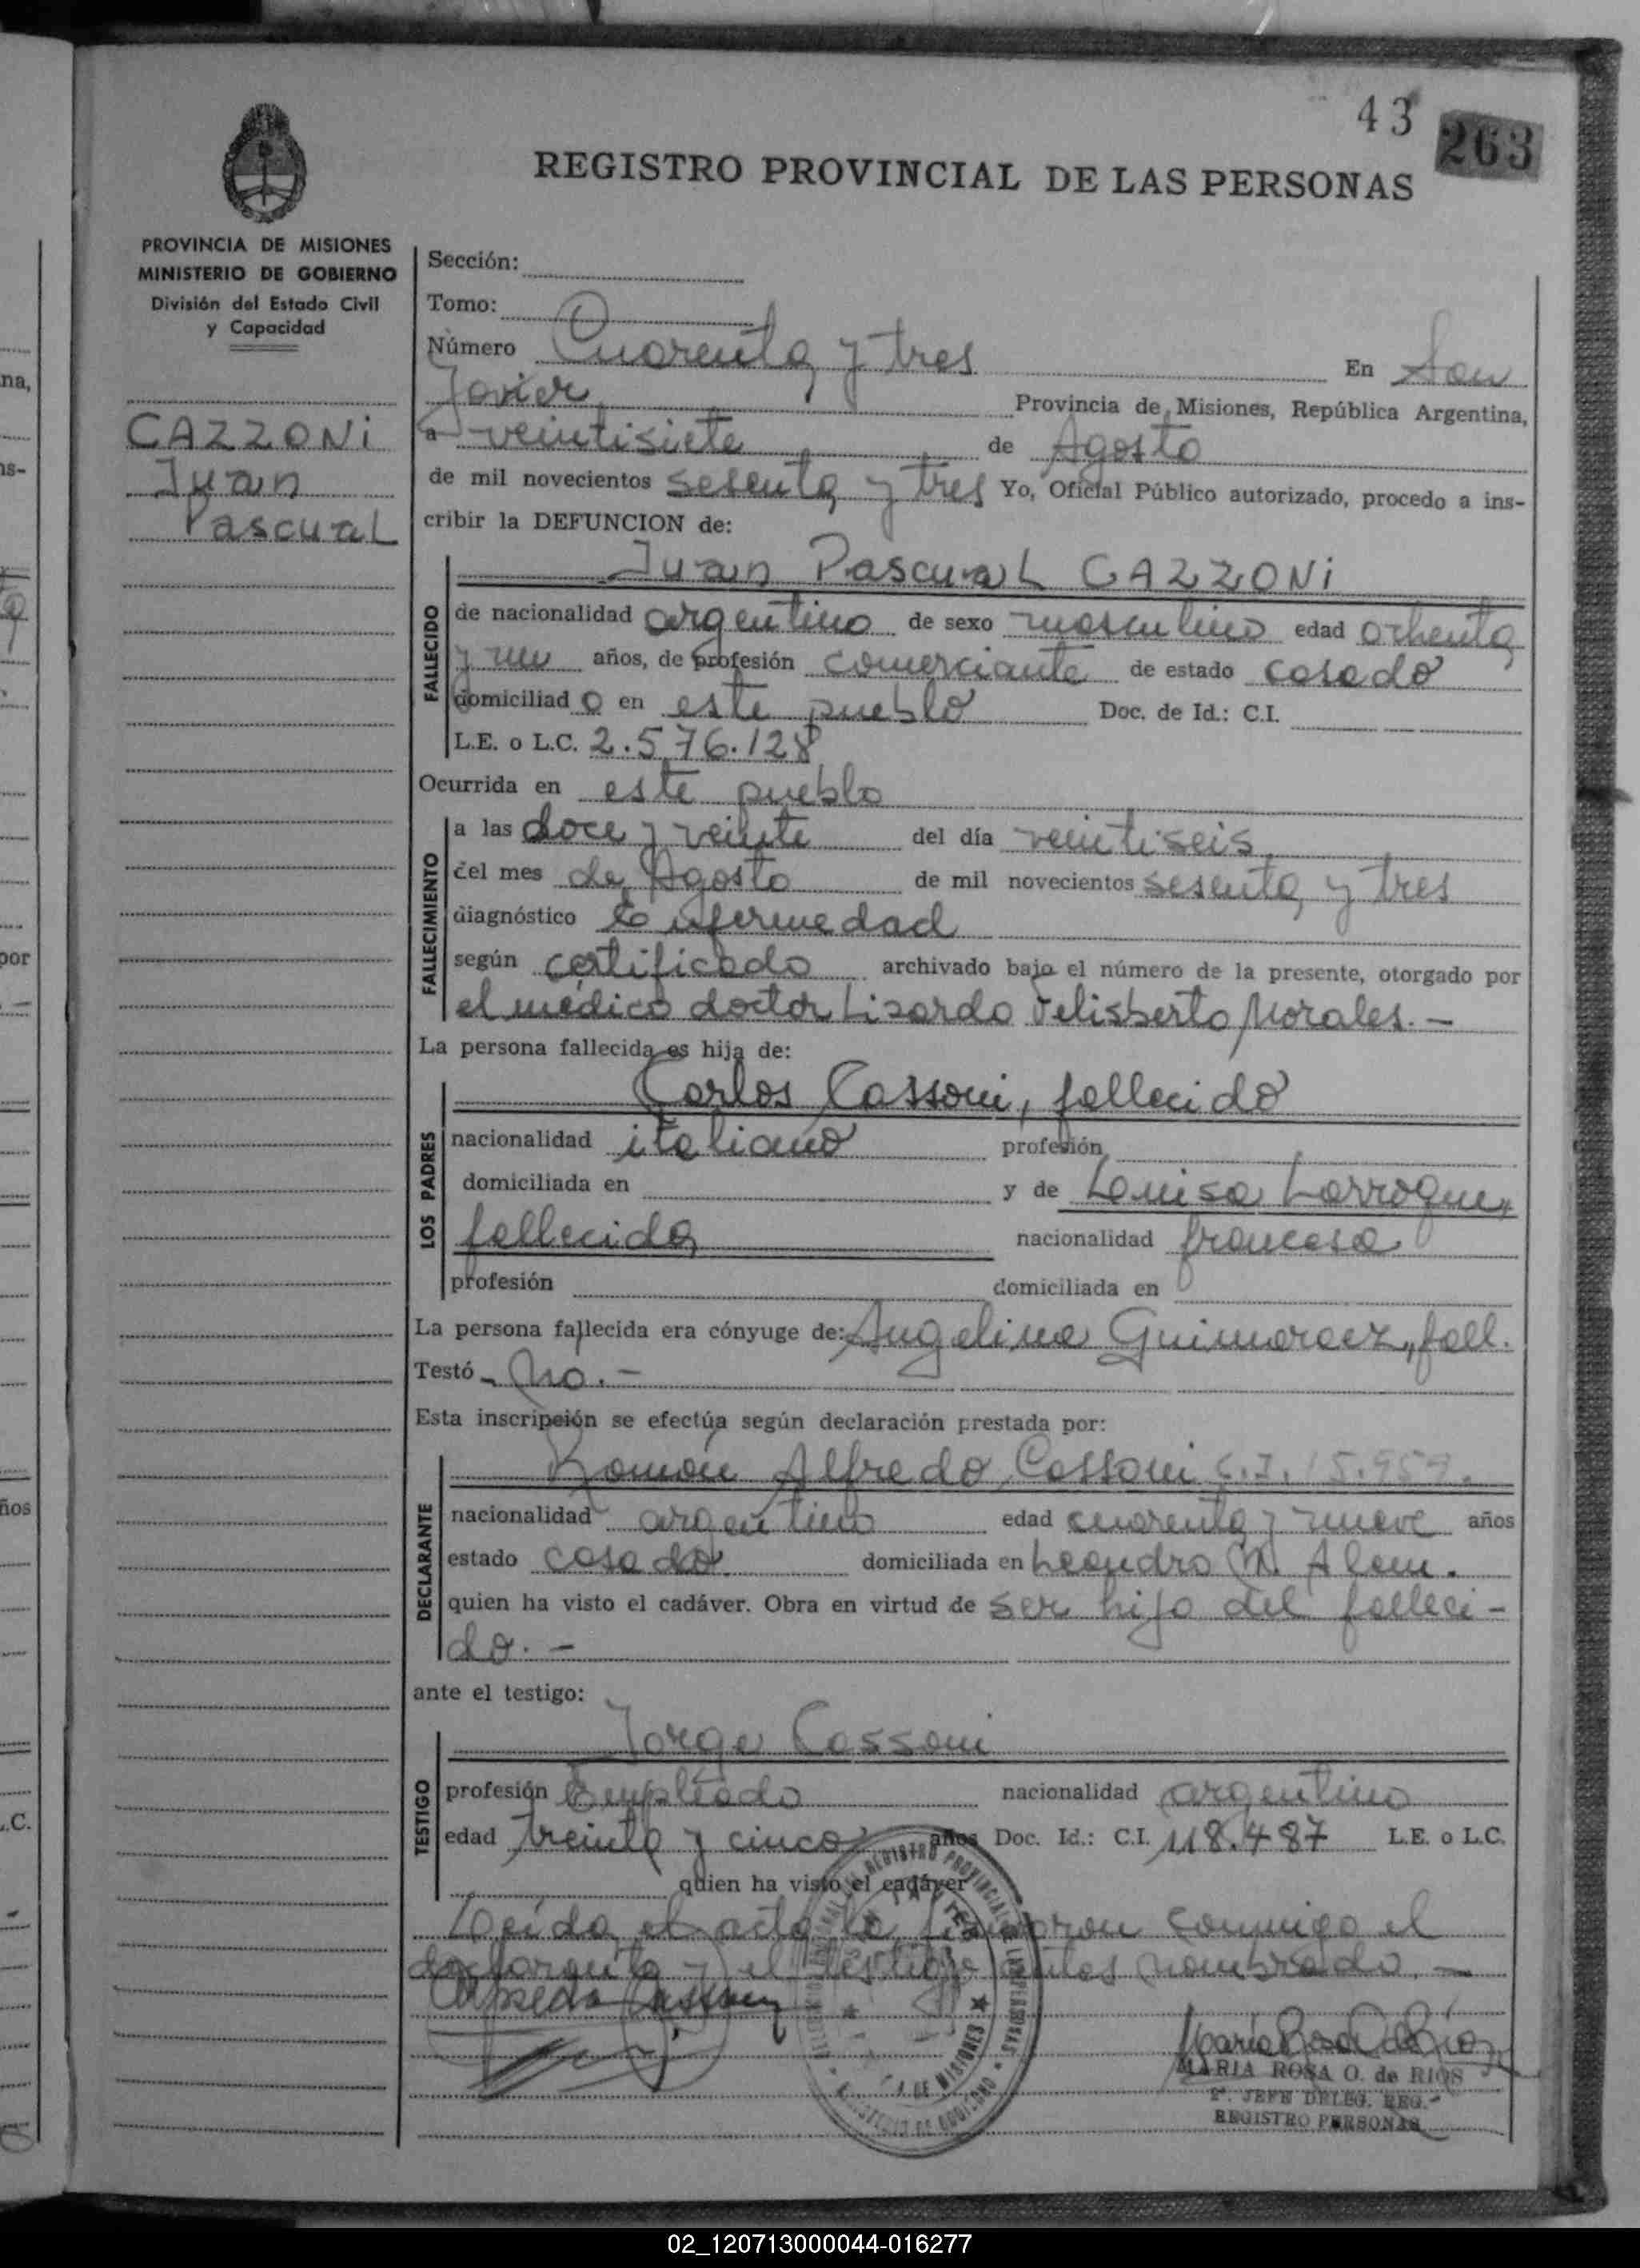 43 263
REGISTRO PROVINCIAL DE LAS PERSONAS
PROVINCIA DE MISIONES
MINISTERIO DE GOBIERNO
División del Estado Civil
y Capacidad
CAZZONi
Juan
Pascual
Sección:
Tomo:
Número Cuarenta y tres En San
Javier Provincia de Misiones, República Argentina,
a veintisiete de Agosto
de mil novecientos sesenta y tres Yo, Oficial Público autorizado, procedo a ins-
cribir la DEFUNCION de:
Juan Pascual CAZZONi
FALLECIDO
de nacionalidad argentino de sexo masculino edad ochenta
y un años, de profesión comerciante de estado casado
domiciliad o en este pueblo Doc. de Id.: C.I.
L.E. o L.C. 2.576.128
Ocurrida en este pueblo
FALLECIMIENTO
a las doce y veinte del día veintiseis
del mes de Agosto de mil novecientos sesenta y tres
diagnóstico enfermedad
según certificado archivado bajo el número de la presente, otorgado por
el médico doctor Lisardo Felisberto Morales. -
La persona fallecida es hija de:
LOS PADRES
Carlos Cassoni, fallecido
nacionalidad italiano profesión
domiciliada en y de Louisa Larroque,
fallecida nacionalidad francesa
profesión domiciliada en
La persona fallecida era cónyuge de: Angelina Guimaraez, fall.
Testó - No. -
Esta inscripción se efectúa según declaración prestada por:
DECLARANTE
Ramón Alfredo Cassoni C.I. 15.959.
nacionalidad argentino edad cuarenta y nueve años
estado casado. domiciliada en Leandro N. Alem.
quien ha visto el cadáver. Obra en virtud de ser hijo del falleci-
do. -
ante el testigo:
TESTIGO
Jorge Cassoni
profesión Empleado nacionalidad argentino
edad treinta y cinco años Doc. Id.: C.I. 118.487 L.E. o L.C.
quien ha visto el cadáver
Leída el acta la firmaron conmigo el
declarante y el testigo antes nombrado. -
MARIA ROSA O. de RIOS
2º. JEFE DELEG. REG.
REGISTRO PERSONAS
02_120713000044-016277